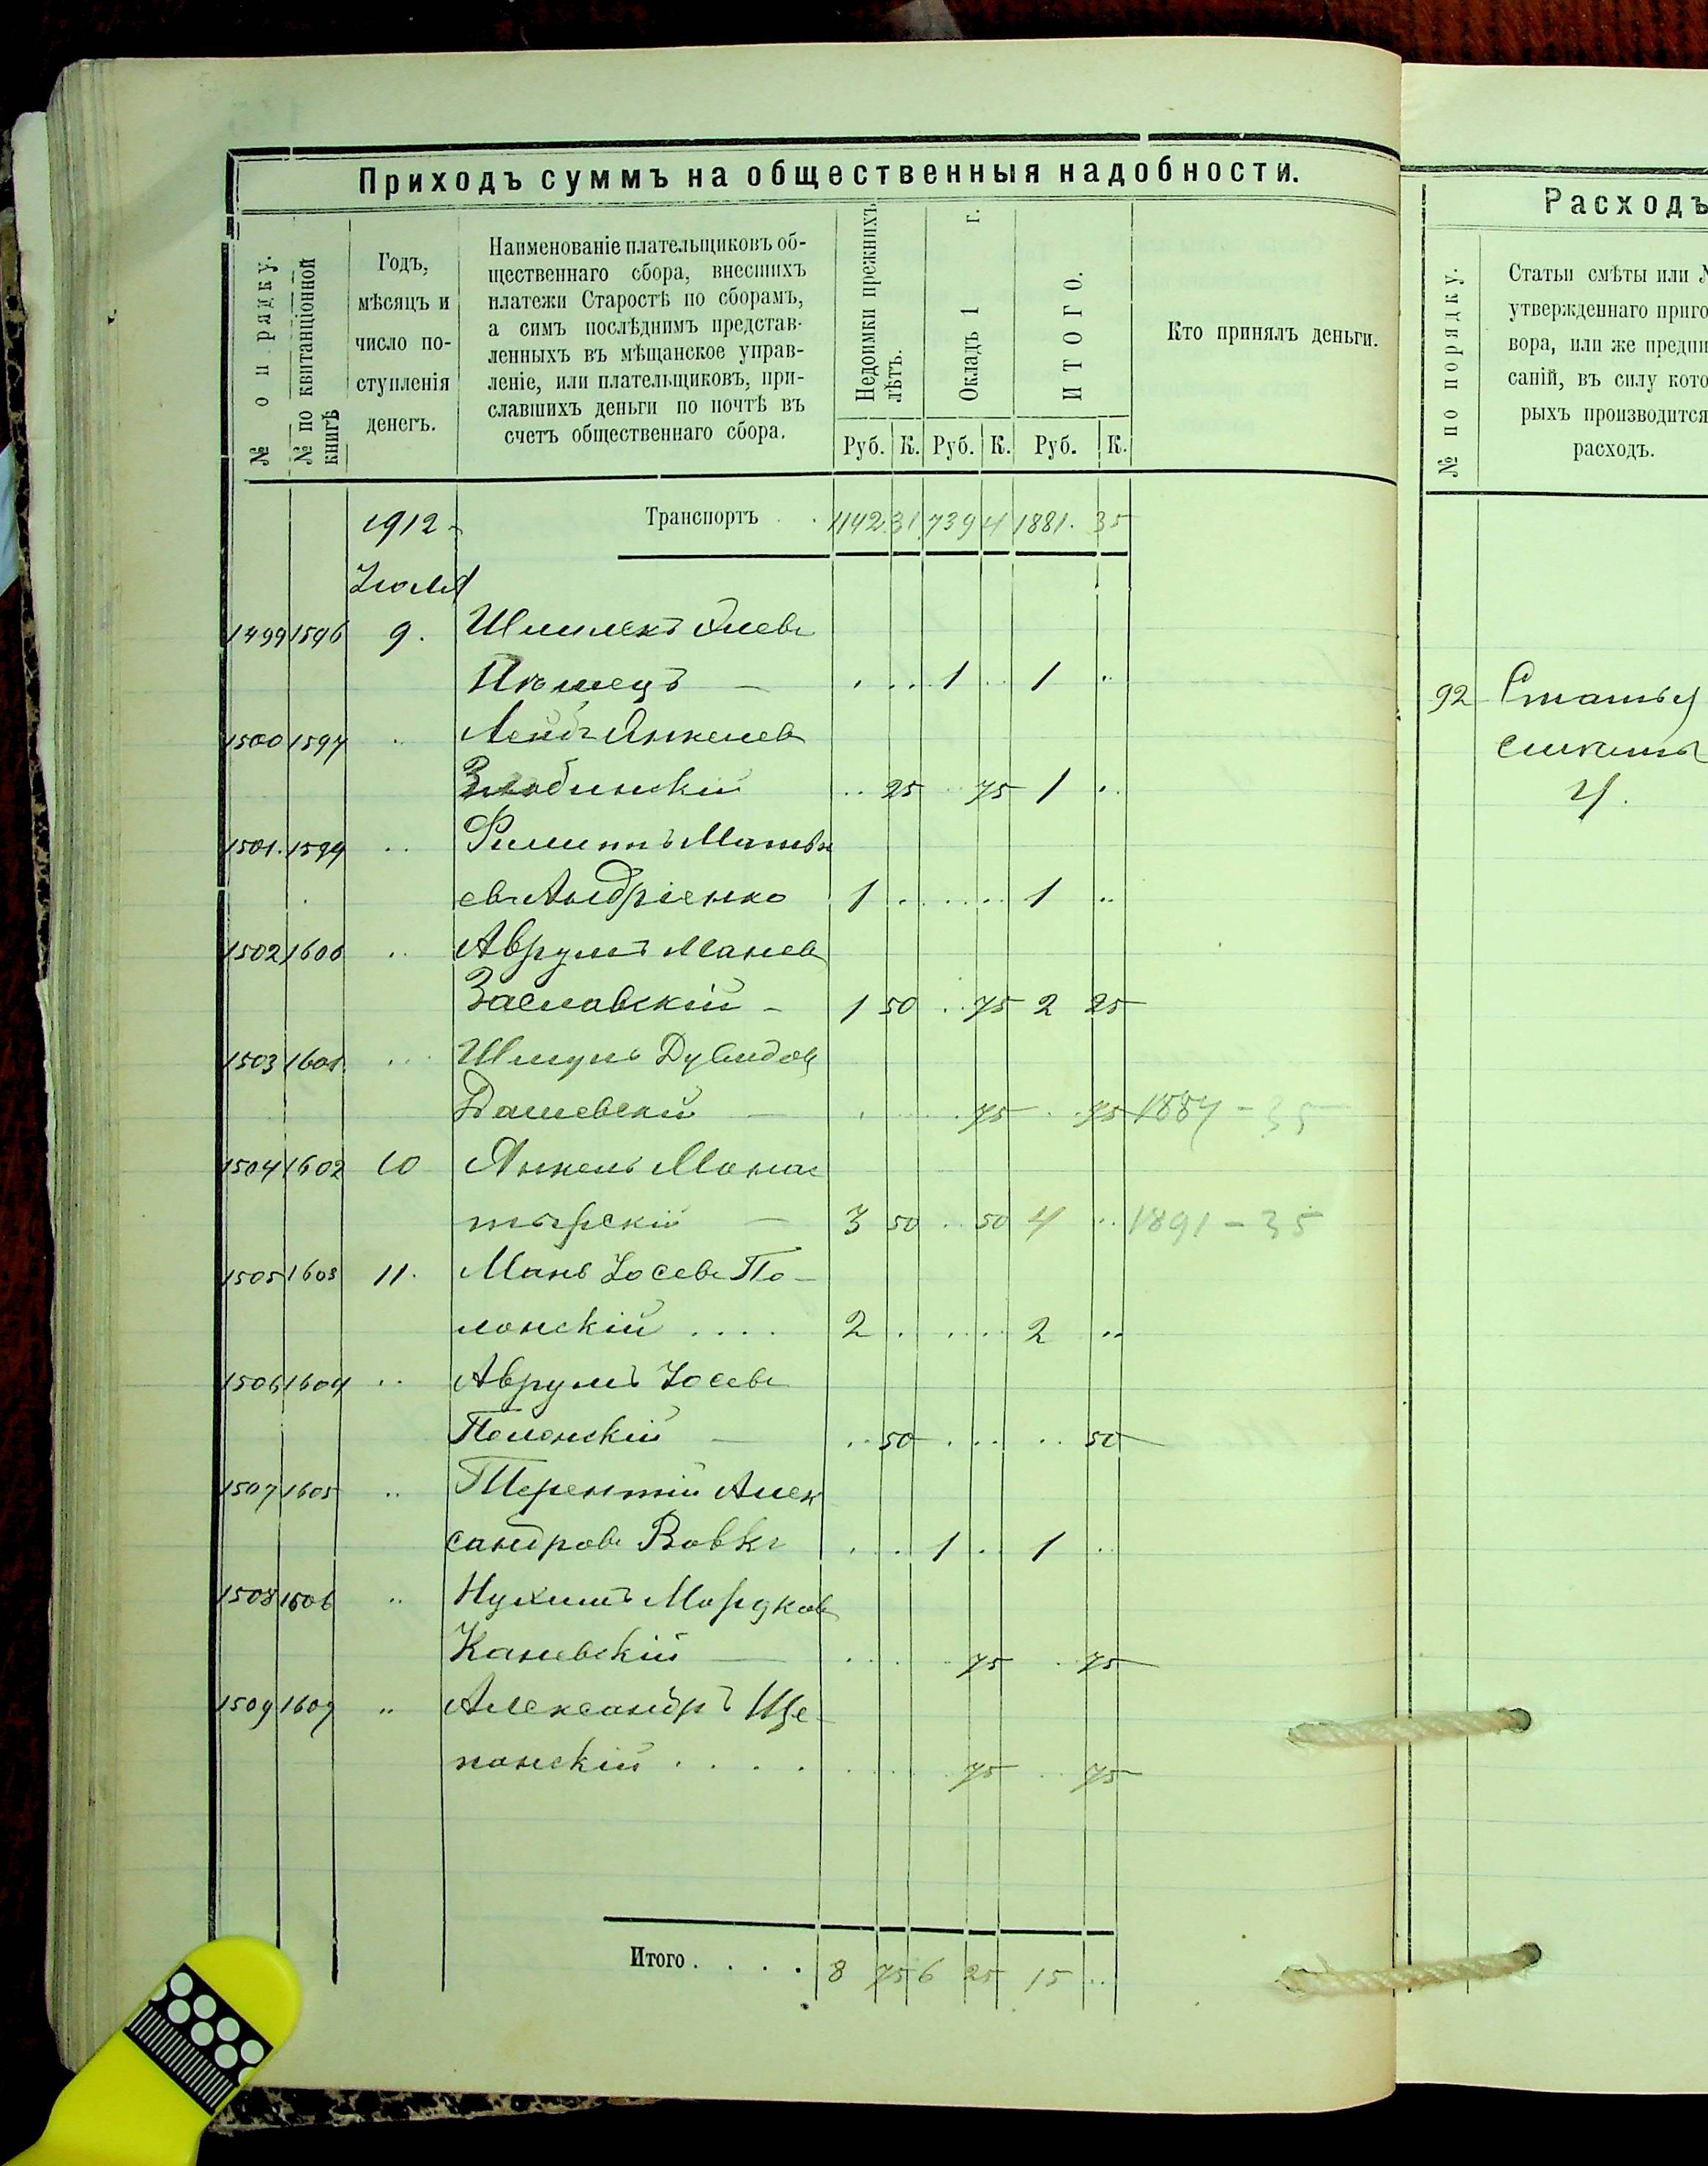 Приходъ суммъ на общественныя надобности.
№ по порядку.
№ по квитанціонной
книгѣ
Годъ,
мѣсяцъ и
число по-
ступленія
денегъ.
Наименованіе плательщиковъ об-
щественнаго сбора, внесшихъ
платежи Старостѣ по сборамъ,
а симъ послѣднимъ представ-
ленныхъ въ мѣщанское управ-
леніе, или плательщиковъ, при-
славшихъ деньги по почтѣ въ
счетъ общественнаго сбора.
Недоимки прежнихъ
лѣтъ.
Окладъ 1 г.
ИТОГО.
Кто принялъ деньги.
Руб. К. Руб. К. Руб. К.
1912 Транспортъ . . 1142 31 739 4 1881. 35
Іюля
1499 1596 9. Шмилекъ
1 1 ..
1500 1597 .. Янкелев
.. 25 .. 75 1 ..
1501. 1599 .. Филиппъ Матвѣ
евъ Андріенко 1 . . . . . 1 ..
1502 1600 .. Аврумъ Манев
Заславскій - 1 50 .. 75 2 25
1503 1601 .. Шмуль Дувидов
Дашевскій — 75 75 1887 - 35
1504 1602 10 Янкель Монас
тырскій — 3 50 .. 50 4 .. 1891 - 35
1505 1603 11. Мань Іосевъ По-
лонскій . . . . 2 . . . . . 2 ..
1506 1604 .. Аврумъ Іосевъ
Полонскій — .. 50 . . . .. 50
1507 1605 .. Терентій Алек
сандровъ Вовкъ . . 1 . 1 ..
1508 1606 .. Нухимъ Мордков
Каневскій — 75 75
1509 1607 .. Александръ Ще-
панскій . . . . 75 75
Итого . . . . 8 75 6 25 15 ..
Расходъ
№ по порядку.
Статьи смѣты или №
утвержденнаго приго
вора, или же предпи
саній, въ силу кото
рыхъ производится
расходъ.
92 Статья
смѣты
4.